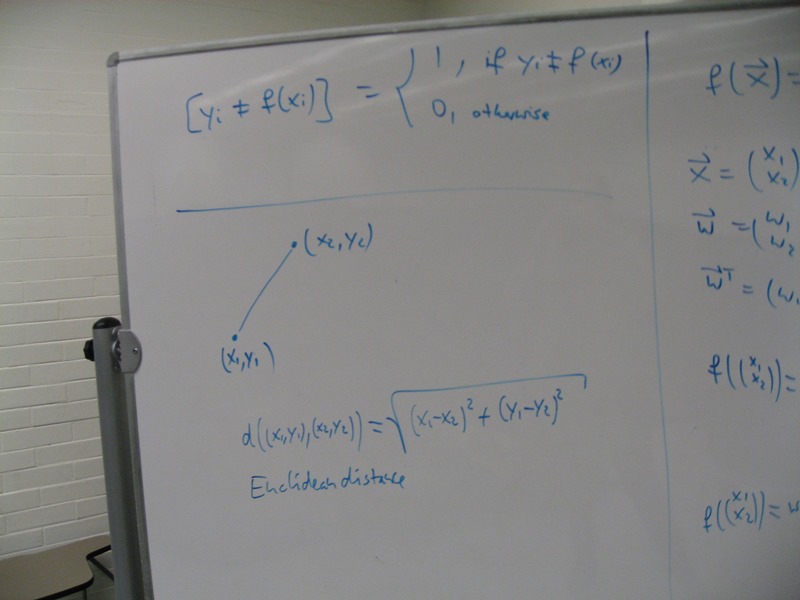 [yi ≠ f(xi)] = { 1, if yi ≠ f(xi)
0, otherwise
(x2, y2)
(x1, y1)
d((x1, y1), (x2, y2)) = √((x1-x2)² + (y1-y2)²)
Euclidean distance
f(x⃗) =
x⃗ = (x1 x2)
w⃗ = (w1 w2
w⃗ᵀ = (w1
f((x1 x2)) =
f((x1 x2)) = w